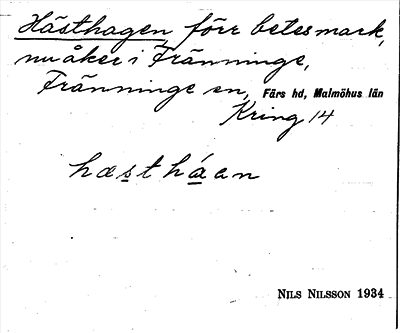 Hästhagen, förr betesmark,
nu åker i Fränninge,
Fränninge sn, Färs hd, Malmöhus län
Kring 14
hæstháan
NILS NILSSON 1934